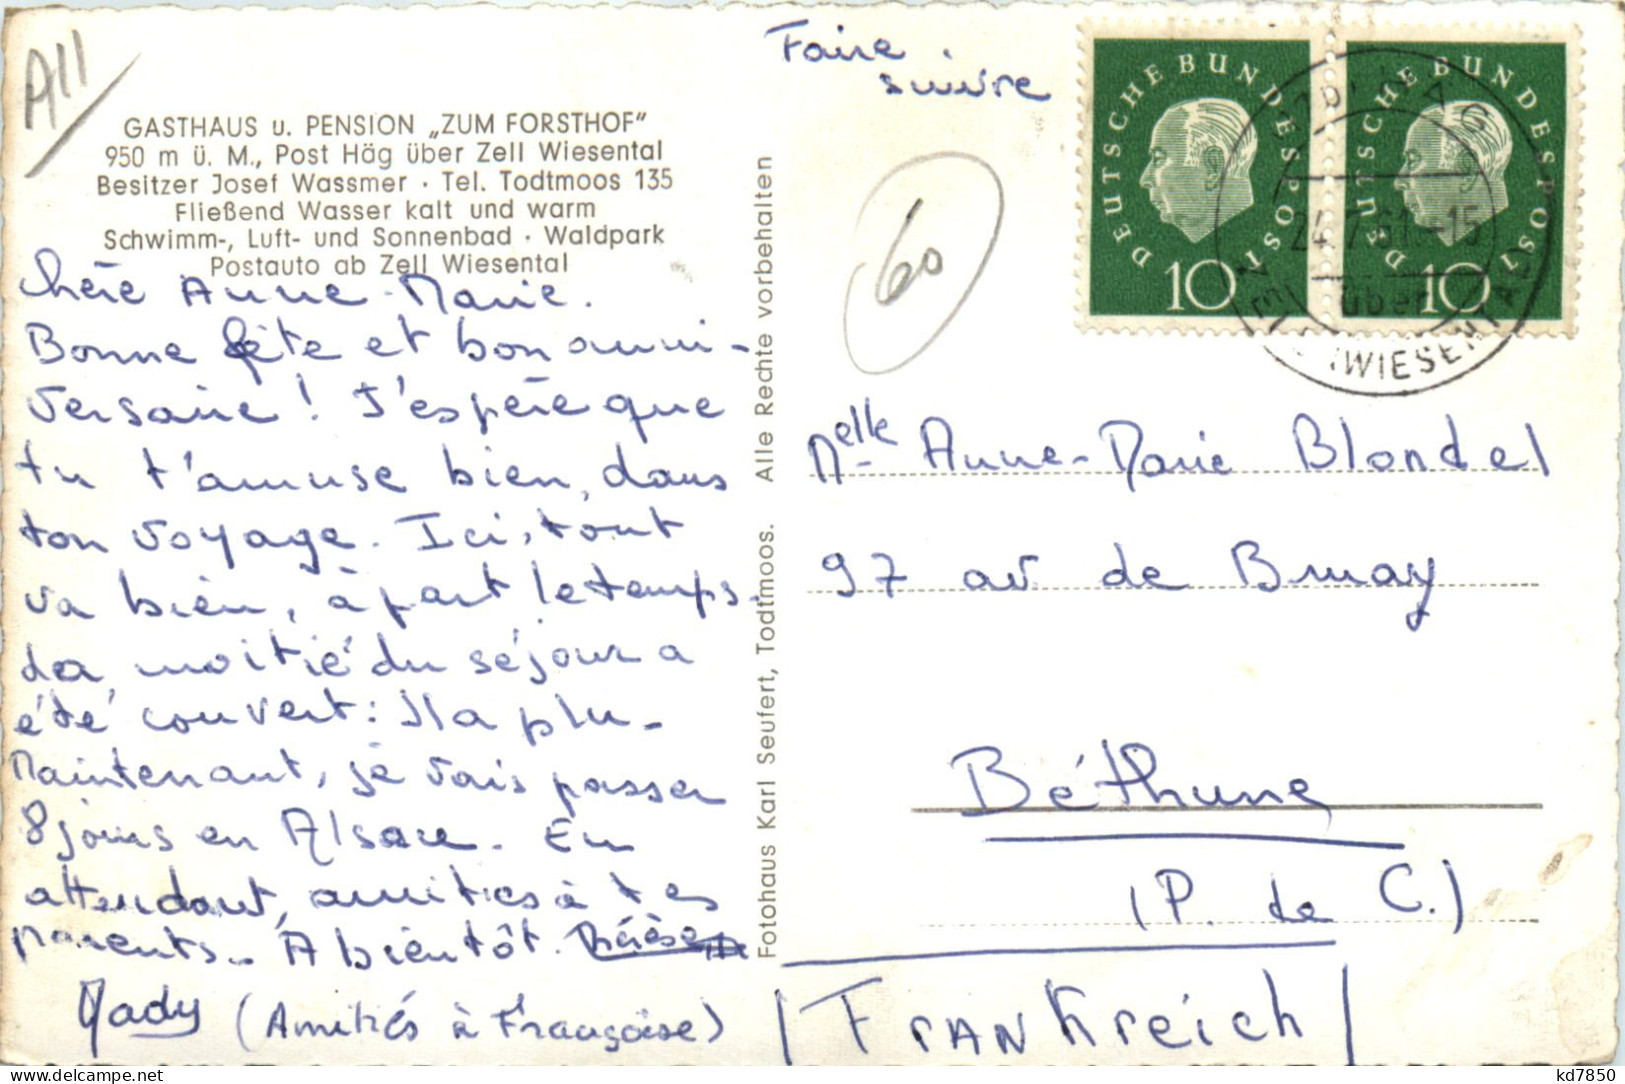 A11
GASTHAUS u. PENSION „ZUM FORSTHOF"
950 m ü. M., Post Häg über Zell Wiesental
Besitzer Josef Wassmer · Tel. Todtmoos 135
Fließend Wasser kalt und warm
Schwimm-, Luft- und Sonnenbad · Waldpark
Postauto ab Zell Wiesental
Chère Anne-Marie.
Bonne fête et bon anni-
versaire ! J'espère que
tu t'amuse bien, dans
ton voyage. Ici, tout
va bien, à part le temps.
La moitié du séjour a
été couvert : Il a plu.
Maintenant, je vais passer
8 jours en Alsace. En
attendant, amitiés à tes
parents. A bientôt.
Mady (Amitiés à Françoise)
Alle Rechte vorbehalten
Fotohaus Karl Seufert, Todtmoos.
Faire
suivre
60
DEUTSCHE BUNDESPOST
10
DEUTSCHE BUNDESPOST
10
24.7.61.-15
über
(WIESENTAL)
Melle Anne-Marie Blondel
97 av de Bruay
Béthune
(P. de C.)
/ Frankreich /
kd7850